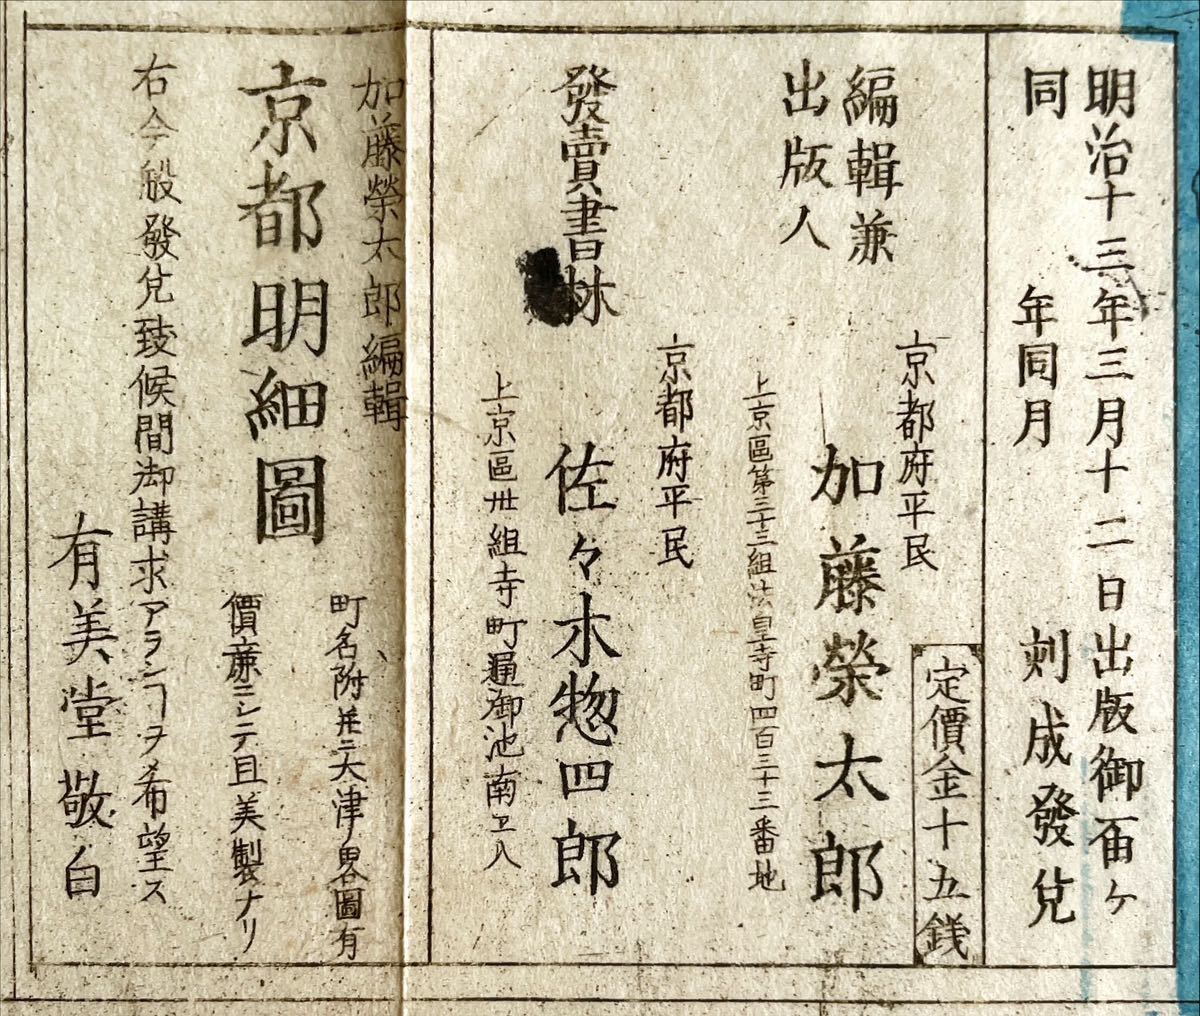 明治十三年三月十二日出版御届ヶ
同　年同月　刻成發兌
定價金十五錢
編輯兼
出版人
京都府平民
加藤榮太郎
上京區第三十三組法皇寺町四百三十三番地
京都府平民
發賣書林　佐々木惣四郎
上京區卅組寺町通御池南ヱ入
加藤榮太郎編輯
京都明細圖
町名附并ニ大津ノ畧圖有
價廉ニシテ且美製ナリ
右今般發兌致候間御講求アランヿヲ希望ス
有美堂敬白